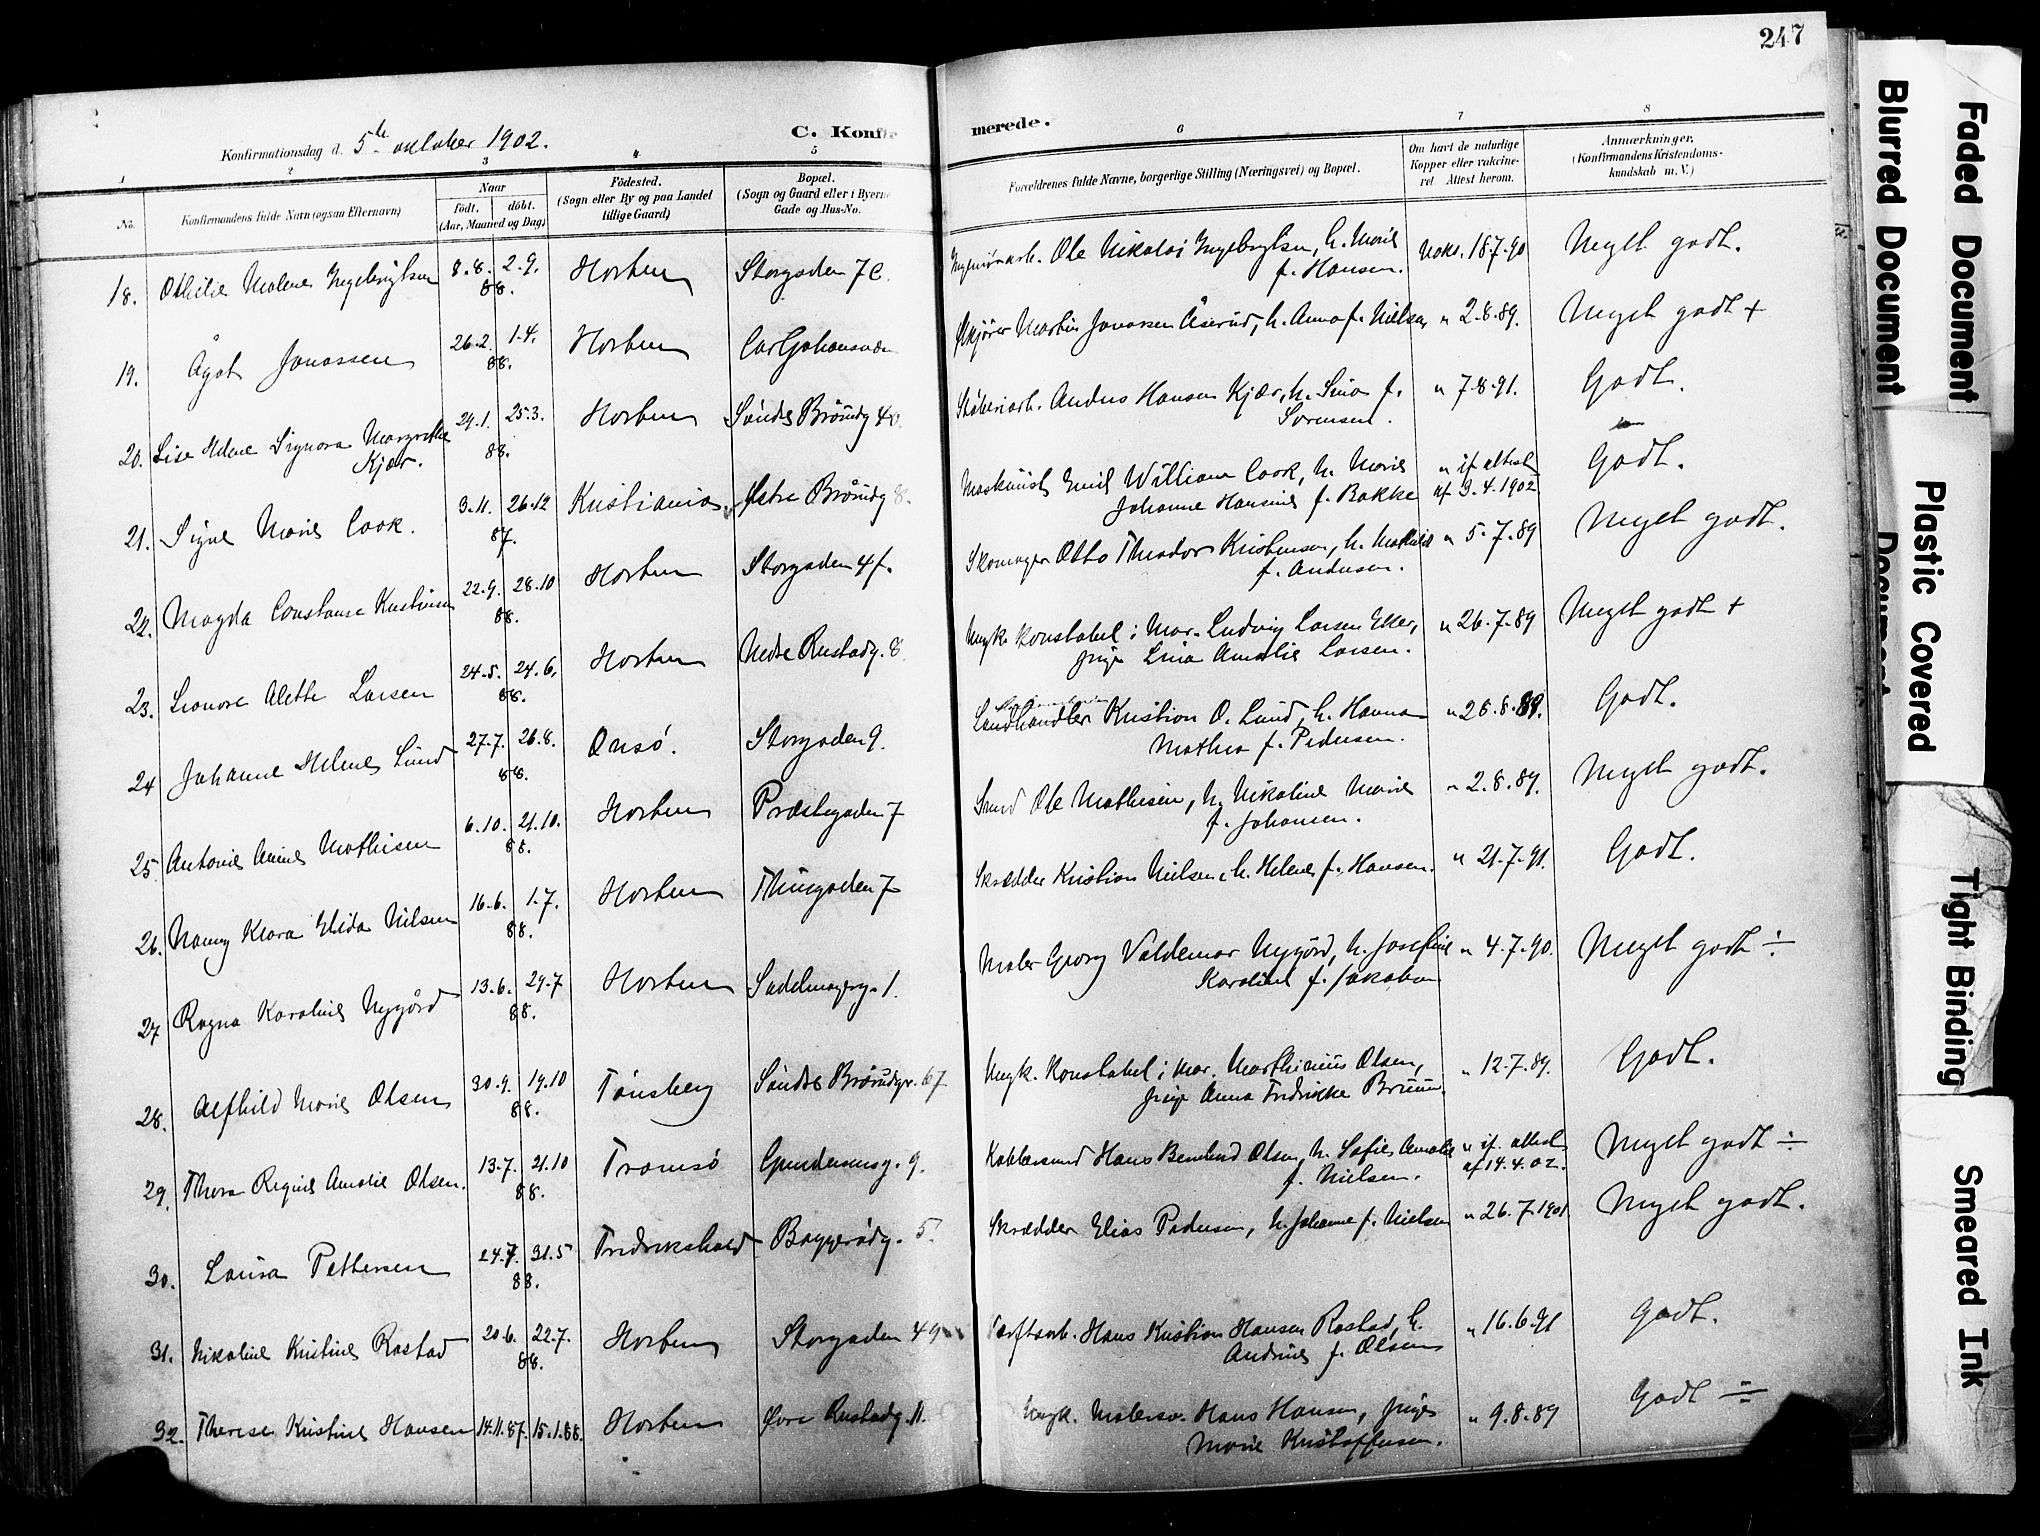 247
5te oktober 1902.
Konfirmationsdag d.
C. Konfir
merede.
1 2 3 4 5 6 7 8
No.
Konfirmandens fulde Navn (ogsaa Efternavn)
Naar
født. døbt.
(Aar, Maaned og Dag)
Fødested.
(Sogn eller By og paa Landet
tillige Gaard)
Bopæl.
(Sogn og Gaard eller i Byerne
Gade og Hus-No.
Forældrenes fulde Navne, borgerlige Stilling (Næringsvei) og Bopæl.
Om havt de naturlige
Kopper eller vakcine-
ret. Attest herom.
Anmærkninger.
(Konfirmandens Kristendoms-
kundskab m. V.)
18. Othilie Malene Ingebrigtsen 8.8. 2.9. 88. Horten Storgaden 7c Ole Nikolai Ingebrigtsen, h. Marie
f. Hansen. vaks. 18-7-90 Meget godt.
19. Ågot Jonassen 26.2. 1.4. 88. Horten Carljohansværn Martin Jonassen Åserud, h. Anna f. Nielsen " 2.8.89. Meget godt +
20. Lise Helene Signora Margrethe
Kjær. 29.1. 25.3. 88. Horten Søndre Brårudg 40. Støberiarb. Anders Hansen Kjær, h. Sina f.
Sørensen. " 7-8-91. Godt.
21. Signe Marie Cook. 3.11. 26.12 87. Kristiania. Østre Brårudg 8. Maskinist Emil William Cook, h. Marie
Johanne Hansine f. Bakke " if. attest
af 3.4.1902 Godt.
22. Magda Constanse Kristensen 22.9. 28.10 88. Horten Storgaden 4f. Skomager Otto Theodor Kristensen, h. Mathilde
f. Andersen. " 5-7-89 Meget godt.
23. Leonore Alette Larsen 24.5. 24.6. 88. Horten Nedre Rustadg. 8. Ungk. konstabel i Mar. Ludvig Larsen Eller,
pige Lina Amalie Larsen. " 26.7.89 Meget godt +
24 Johanne Helene Lund 27.7. 26.8. 88. Onsø. Storgaden 9. Landhandler Kristian O. Lund, h. Hanna
Mathea f. Pedersen. " 28.8.89. Godt.
25. Antonie Amine Mathisen 6.10. 21.10. 88. Horten Præstegaden 7 Smed Ole Mathisen, h. Nikoline Marie
f. Johansen. " 2.8.89. Meget godt.
26. Nanny Klara Elida Nilsen 16.6. 1.7. 88. Horten Thuegaden 7 Skrædder Kristian Nielsen, h. Helene f. Hansen. " 21-7-91. Godt.
27 Ragna Karoline Nygård 13.6. 29.7 88. Horten Sadelmagerg. 1. Maler Georg Valdemar Nygård, h. Josefine
Karoline f. Jakobsen " 4.7.90. Meget godt ÷
28. Alfhild Marie Olsen 30.9. 19.10 88. Tønsberg Søndre Brårudgr. 67. Ungk. konstabel i Mar. Marthinius Olsen,
pige Anna Fredrikke Bruun. " 12.7.89. Godt.
29. Thora Regine Amalie Olsen. 13.7. 21.10 88. Tromsø Gundersensg. 9. Kobbersmed Hans Bernhard Olsen, h. Sofie Amalie
f. Nielsen. " if. attest
af 14.4.02. Meget godt ÷
30. Laura Pettersen 24.7. 31.5 88. Fredrikshald Baggerødg. 5. Skrædder Elias Pedersen, h. Johanne f. Nielsen " 26.7.1901 Meget godt.
31. Nikoline Kristine Rastad 20.6. 22.7. 88. Horten Storgaden 49 Værftsarb. Hans Kristian Hansen Rastad, h.
Andrine f. Olsen " 16.6.91 Godt.
32. Therese Kristine Hansen 14.11.87. 15.1.88. Horten Øvre Rustadg. 11. Ungk. Malersv. Hans Hansen, pige
Marie Kristoffersen. " 9.8.89 Godt ÷
Faded Document
Blurred Document
Plastic Covered
Document
Tight Binding
Smeared Ink